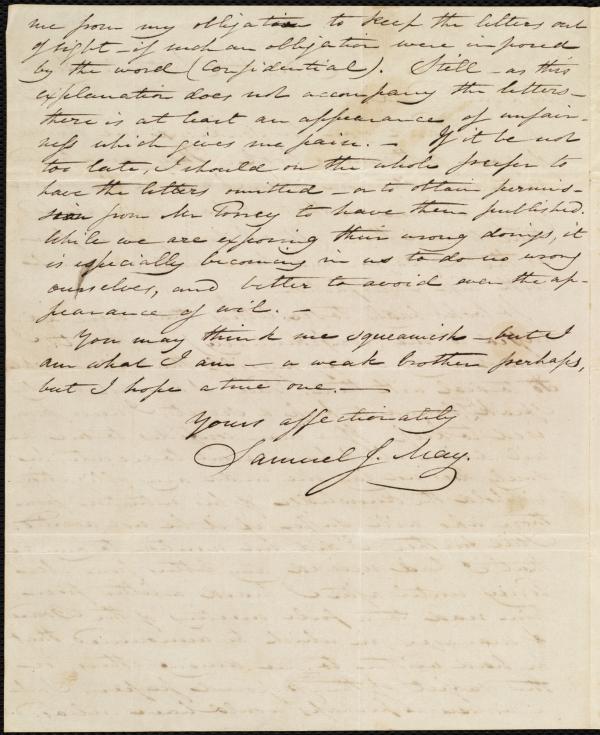 me from my obligation to keep the letters out
of sight – if such an obligation were imposed
by the word (Confidential). Still – as this
explanation does not accompany the letters –
there is at least an appearance of unfair-
ness which gives me pain. – If it be not
too late, I should on the whole prefer to
have the letters omitted – or to obtain permis-
sion from Mr Torrey to have them published.
While we are exposing their wrong doings, it
is especially becoming in us to do no wrong
ourselves, and better to avoid even the ap-
pearance of evil. –
You may think me squeamish – but I
am what I am – a weak brother perhaps,
but I hope a true one. –
Yours affectionately
Samuel J. May.